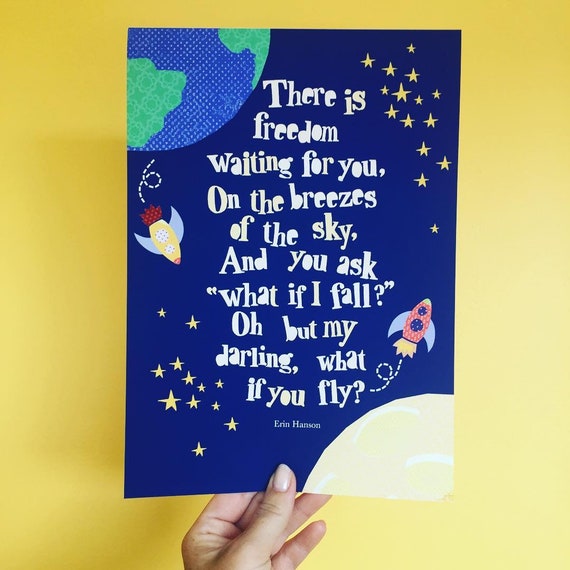 There is
freedom
waiting for you,
On the breezes
of the sky,
And you ask
“what if I fall?”
Oh but my
darling, what
if you fly?
Erin Hanson